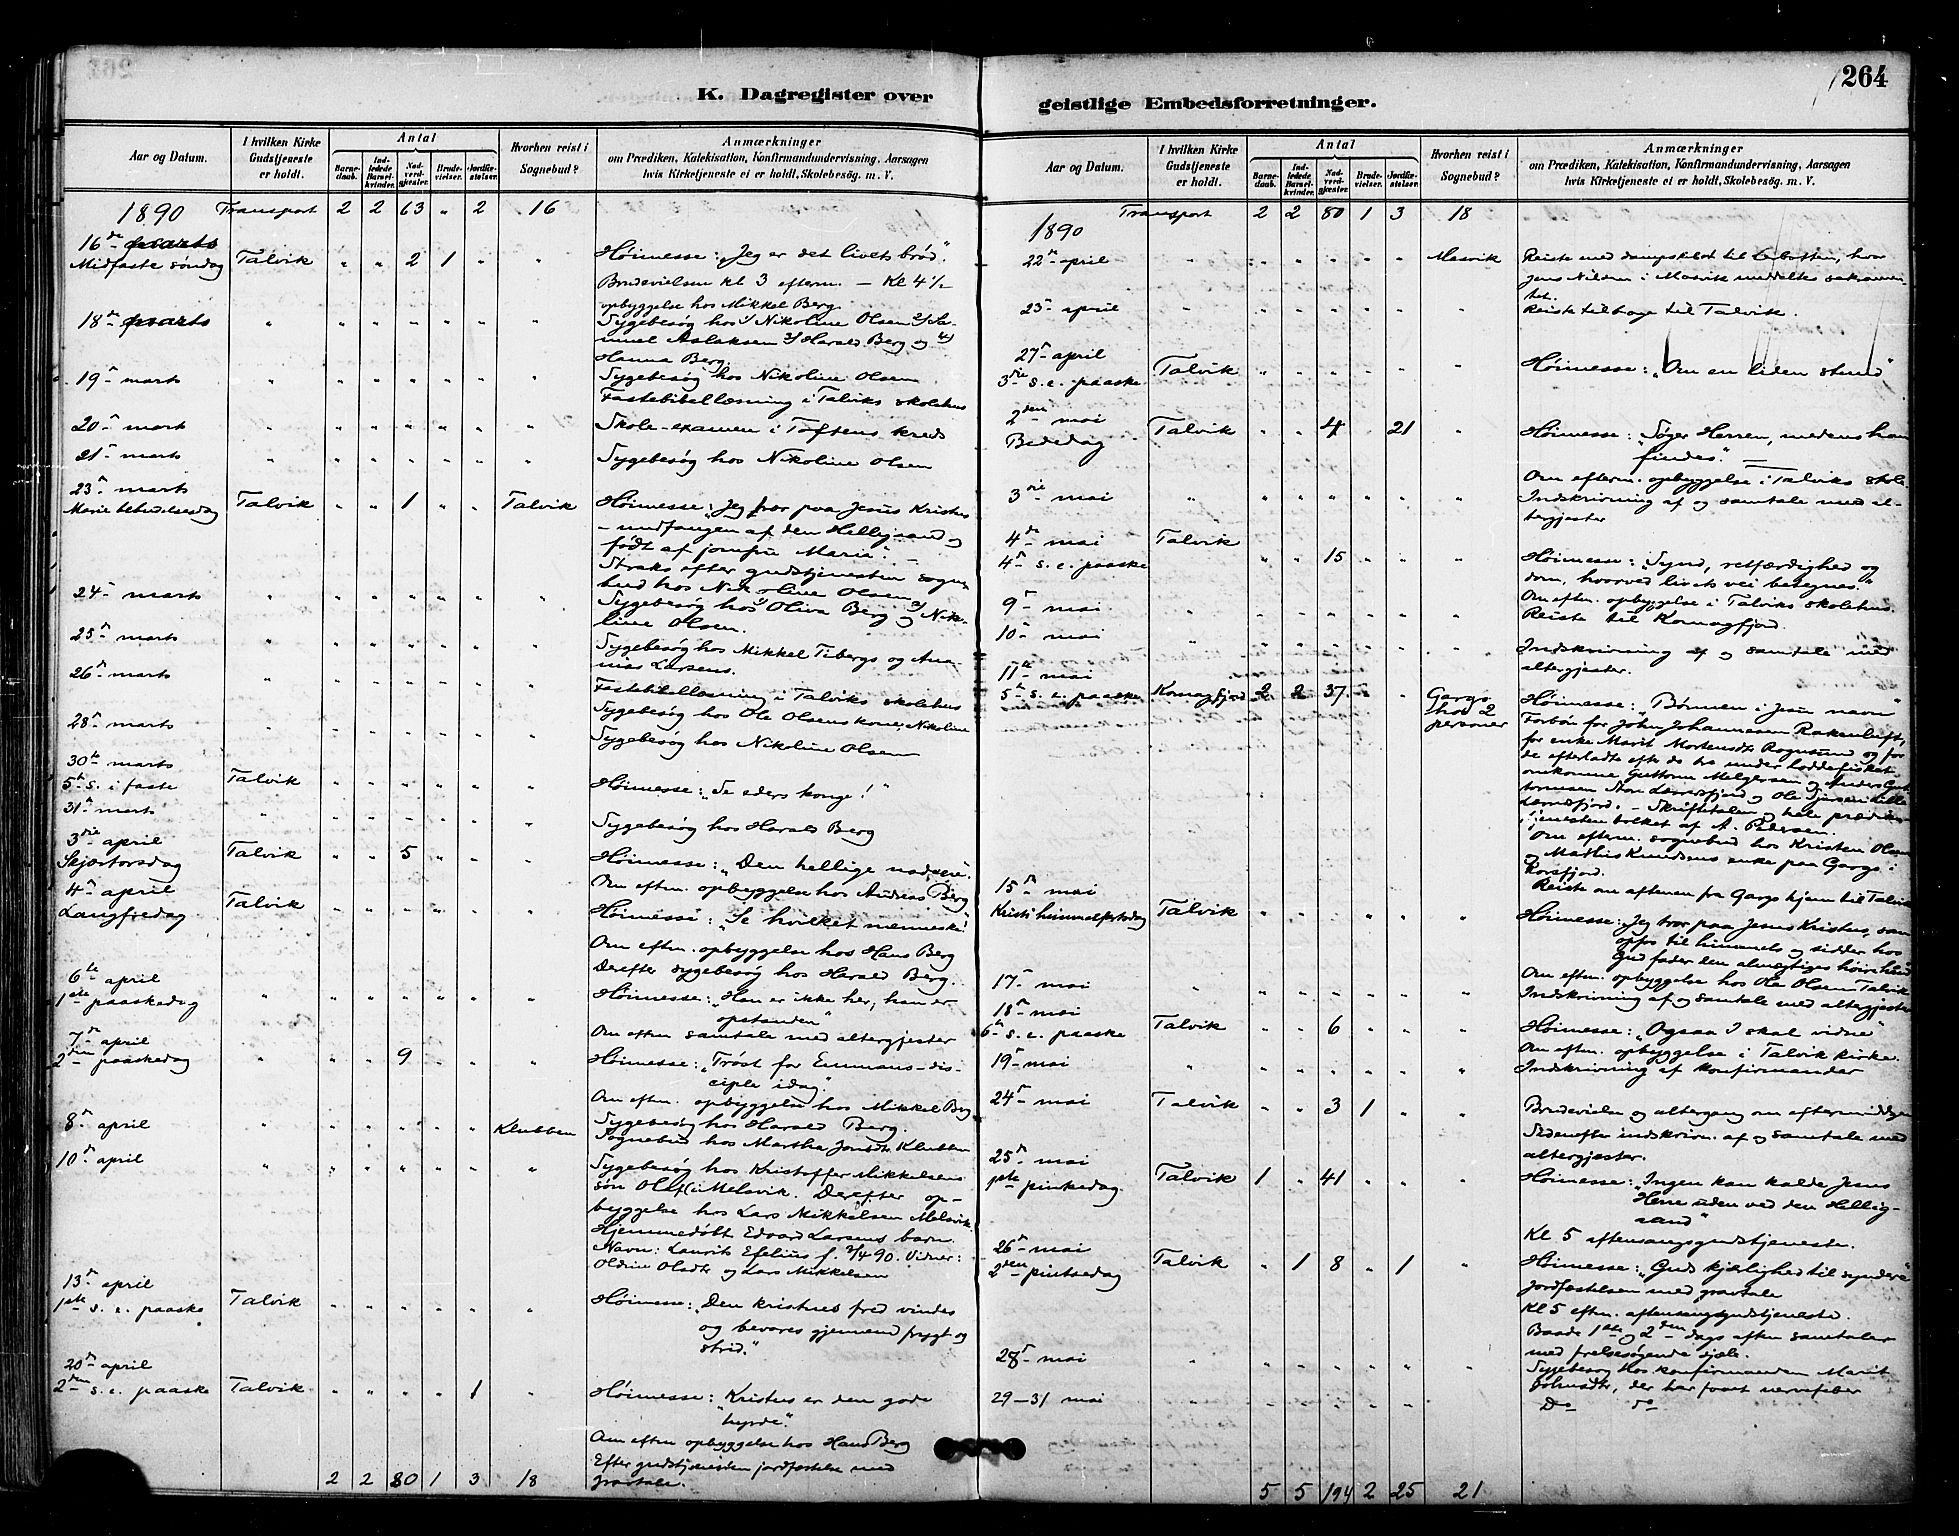 264
K. Dagregister over
Aar og Datum.
I hvilken Kirke Gudstjeneste er holdt.
Antal
Barnedaab.
Indledede Barselkvinder.
Nadverdgjester.
Brudevielser.
Jordfæstelser.
Hvorhen reist i Sognebud?
Anmærkninger
om Prædiken, Katekisation, Konfirmandundervisning, Aarsagen
hvis Kirketjeneste ei er holdt, Skolebesøg. m. V.
1890 Transport 2 2 63 " 2 16
16de marts
Midfaste søndag Talvik " " 2 1 " " Høimesse: "Jeg er det livets brød."
Brudevielsen kl 3 efterm. — Kl 4 1/2
opbyggelse hos Mikkel Berg.
18de marts " " " " " " " Sygebesøg hos 1/ Nikoline Olsen 2/ Sa-
muel Aslaksen 3/ Harald Berg og 4/
Hanna Berg.
19de marts " " " " " " " Sygebesøg hos Nikoline Olsen
Fastebibellæsning i Talviks skolehus
20de marts " " " " " " " Skole-examen i Toftens kreds
21de marts " " " " " " Sygebesøg hos Nikoline Olsen
23de marts
Marie bebudelsesdag Talvik " " 1 " " Talvik Høimesse: "Jeg tror paa Jesus Kristus
— undfangen af den Helligaand og
født af jomfru Marie". —
Straks efter gudstjenesten sogne-
bud hos Nikoline Olsen
24de marts " " " " " " " Sygebesøg hos 1/ Oliva Berg og 2/ Niko-
line Olsen.
25de marts " " " " " " " Sygebesøg hos Mikkel Tibergs og Ana-
nias Larsens.
26de marts " " " " " " " Fastebibellæsning i Talviks skolehus
Sygebesøg hos Ole Olsens kone, Nikoline
28de marts " " " " " " " Sygebesøg hos Nikoline Olsen
30te marts
5te s. i faste Talvik " " " " " " Høimesse: "Se eders konge!"
31te marts " " " " " " " Sygebesøg hos Harald Berg
3die april
Skjærtorsdag Talvik " " 5 " " " Høimesse: "Den hellige nadvere".
Om eftm. opbyggelse hos Andreas Berg
4de april
Langfredag Talvik " " " " " " Høimesse: "Se hvilket menneske!"
Om eftm. opbyggelse hos Hans Berg
Derefter sygebesøg hos Harald Berg.
6te april
1ste paaskedag " " " " " " " Høimesse: "Han er ikke her, han er
opstanden"
Om eftm samtale med altergjester
7de april
2den paaskedag " " " 9 " " " Høimesse: "Trøst for Emmaus-dis-
ciple idag".
Om eftm. opbyggelse hos Mikkel Berg
8de april " " " " " " Klubben Sygebesøg hos Harald Berg.
Sognebud hos Martha Jonsdtr Klubben
10de april " " " " " " " Sygebesøg hos Kristoffer Mikkelsens
søn Olef i Melsvik. Derefter op-
byggelse hos Lars Mikkelsen Melsvik.
Hjemmedøbt Edvard Larsens barn.
Navn: Laurits Efelius f. 2/4 90. Vidner:
Oldine Olsdtr og Lars Mikkelsen
13de april
1ste s. e. paaske Talvik " " " " " " Høimesse: "Den kristnes fred vindes
og bevares gjennem frygt og
strid."
20de april
2den s. e. paaske Talvik " " " " 1 " Høimesse: "Kristus er den gode
hyrde".
Om eftm opbyggelse hos Hans Berg
Efter gudstjenesten jordfæstelse med
gravtale.
2 2 80 1 3 18
geistlige Embedsforretninger.
Aar og Datum.
I hvilken Kirke Gudstjeneste er holdt.
Antal
Barnedaab.
Indledede Barselkvinder.
Nadverdgjester.
Brudevielser.
Jordfæstelser.
Hvorhen reist i Sognebud?
Anmærkninger
om Prædiken, Katekisation, Konfirmandundervisning, Aarsagen
hvis Kirketjeneste ei er holdt, Skolebesøg. m. V.
Transport 2 2 80 1 3 18
1890
22de april " " " " " " Masvik Reiste med dampskibet til , hvor
Jens Nilsen i Masvik meddeltes sakramen-
tet.
23de april " " " " " " " Reiste tilbage til Talvik.
27de april
3die s. e. paaske Talvik " " " " " " Høimesse: "Om en liden stund"
2den mai
Bededag Talvik " " 4 " 21 " Høimesse: "Søger Herren, medens han
findes." —
Om efterm. opbyggelse i Talviks skole
3die mai " " " " " " " Indskrivning af og samtale med al-
tergjester
4de mai Talvik
4de s. e. paaske " " 15 " " " Høimesse: "Synd, retfærdighed og
dom, hvorved livets vei betegnes."
Om eftm. opbyggelse i Talviks skolehus.
9de mai " " " " " " " Reiste til Komagfjord.
10de mai " " " " " " " Indskrivning af og samtale med
altergjester.
11te mai
5te s. e. paaske Komagfjord 2 2 37 " " Gargo hos 2 personer Høimesse: "Bønnen i Jesu navn"
Forbøn for John Johannesen Rakenluft,
for enke Marit Mortensdtr Rognsund og for
de efterladte efter de tre under loddefisket
omkomne Guttorm Melgersen og Anders Gut-
tormsen Store Lerresfjord og Ole Lille
Lerresfjord. — Skriftetalen og hele prædike-
tjenesten tolket af A. Pedersen.
Om efterm. sognebud hos Kristen Olsen
og Mathis Knudsens enke paa Gargo i
Korsfjord.
Reiste om aftenen fra Gargo hjem til Talvik
15de mai
Kristi himmelfartsdag Talvik " " " " " " Høimesse: "Jeg tror paa Jesus Kristus, som
opfor til himmels og sidder hos
Gud fader den almægtiges høire haand"
Om eftm. opbyggelse hos Ole Olsen Talvik
17de mai " " " " " " " Indskrivning af og samtale med altergjester
18de mai
6te s. e. paaske Talvik " " 6 " " " Høimesse: "Ogsaa I skal vidne"
Om eftm. opbyggelse i Talvik kirke.
19de mai " " " " " " " Indskrivning af konfirmander
24de mai Talvik " " 3 1 " " Brudevielse og altergang om eftermiddagen
Sidenefter indskrivn. af og samtale med
altergjester.
25de mai
1ste pintsedag Talvik 1 " 41 " " " Høimesse: "Ingen kan kalde Jesus
Herre uden ved den Hellig-
aand"
Kl 5 aftensangsgudstjeneste.
26de mai
2den pintsedag Talvik " 1 8 " 1 " Høimesse: "Guds kjærlighed til syndere"
Jordfæstelsen med gravtale
Kl 5 eftm. aftensangsgudstjeneste.
Baade 1ste og 2den dags aften samtaler
med frelsesøgende sjæle.
28de mai " " " " " " " Sygebesøg hos konfirmanden Marit
Johnsdtr, der har faaet nervefeber
29—31 mai " " " " " " " Do do
5 5 194 2 25 21